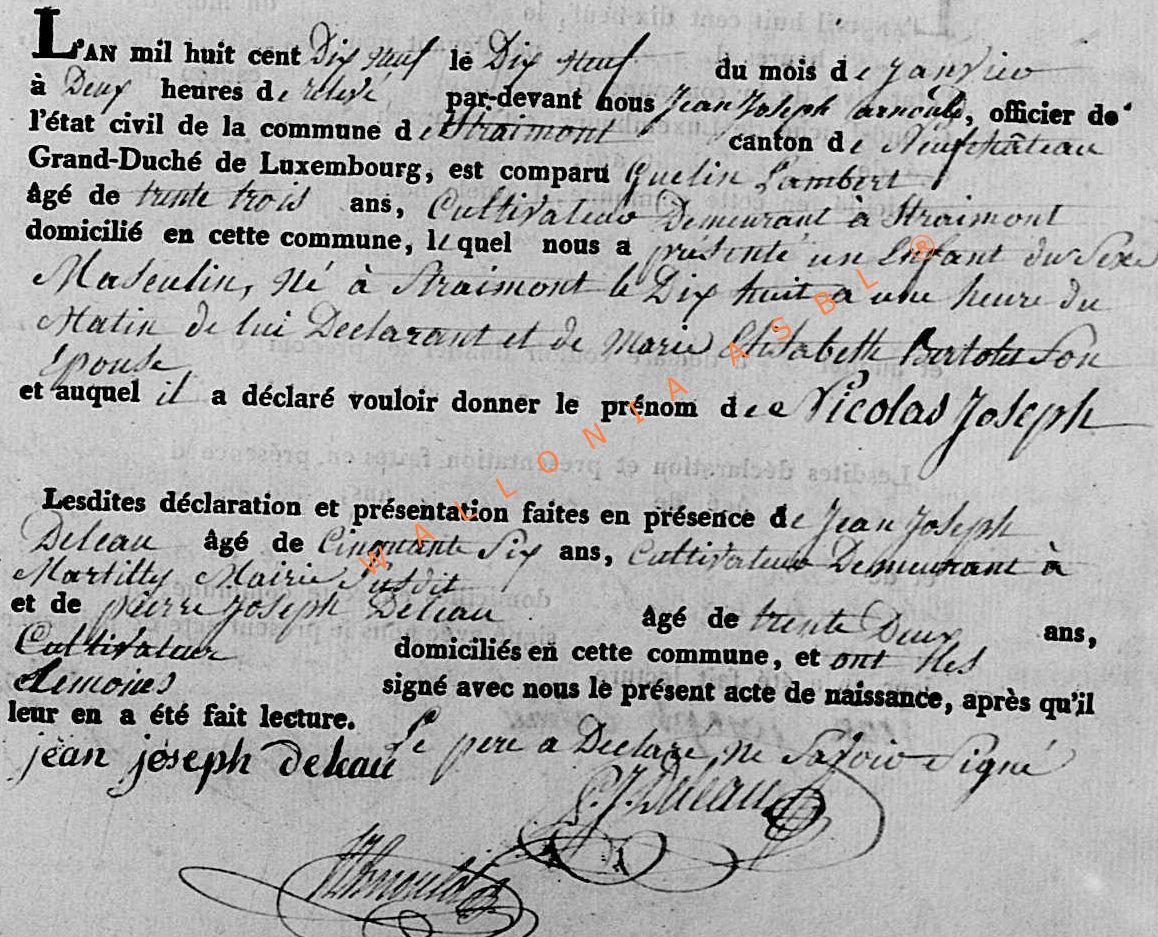 L'AN mil huit cent Dix neuf le Dix neuf du mois de janvier
à Deux heures de relevé par-devant nous Jean Joseph arnould, officier de
l'état civil de la commune de Straimont canton de Neufchâteau
Grand-Duché de Luxembourg, est comparu Guelin Lambert
âgé de trente trois ans, Cultivateur Demeurant à Straimont
domicilié en cette commune, lequel nous a présenté un Enfant du Sexe
Masculin, Né à Straimont le Dix huit a une heure du
Matin de lui Declarant et de Marie Elisabeth Son
Epouse
et auquel il a déclaré vouloir donner le prénom de Nicolas Joseph
Lesdites déclaration et présentation faites en présence de Jean Joseph
Deleau âgé de Cinquante Six ans, Cultivateur Demeurant à
Martilly Mairie susdit
et de pierre Joseph Deleau âgé de trente Deux ans,
Cultivateur domiciliés en cette commune, et ont les
temoins signé avec nous le présent acte de naissance, après qu'il
leur en a été fait lecture.
jean joseph deleau Le pere a Declare ne Savoir Signé
P. J. Deleau
WALLONIA ASBL ®